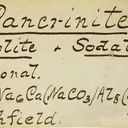 Cancrinite
olite + Sodal
onal.
Na6Ca(NaCO3)Al8(
hfield.